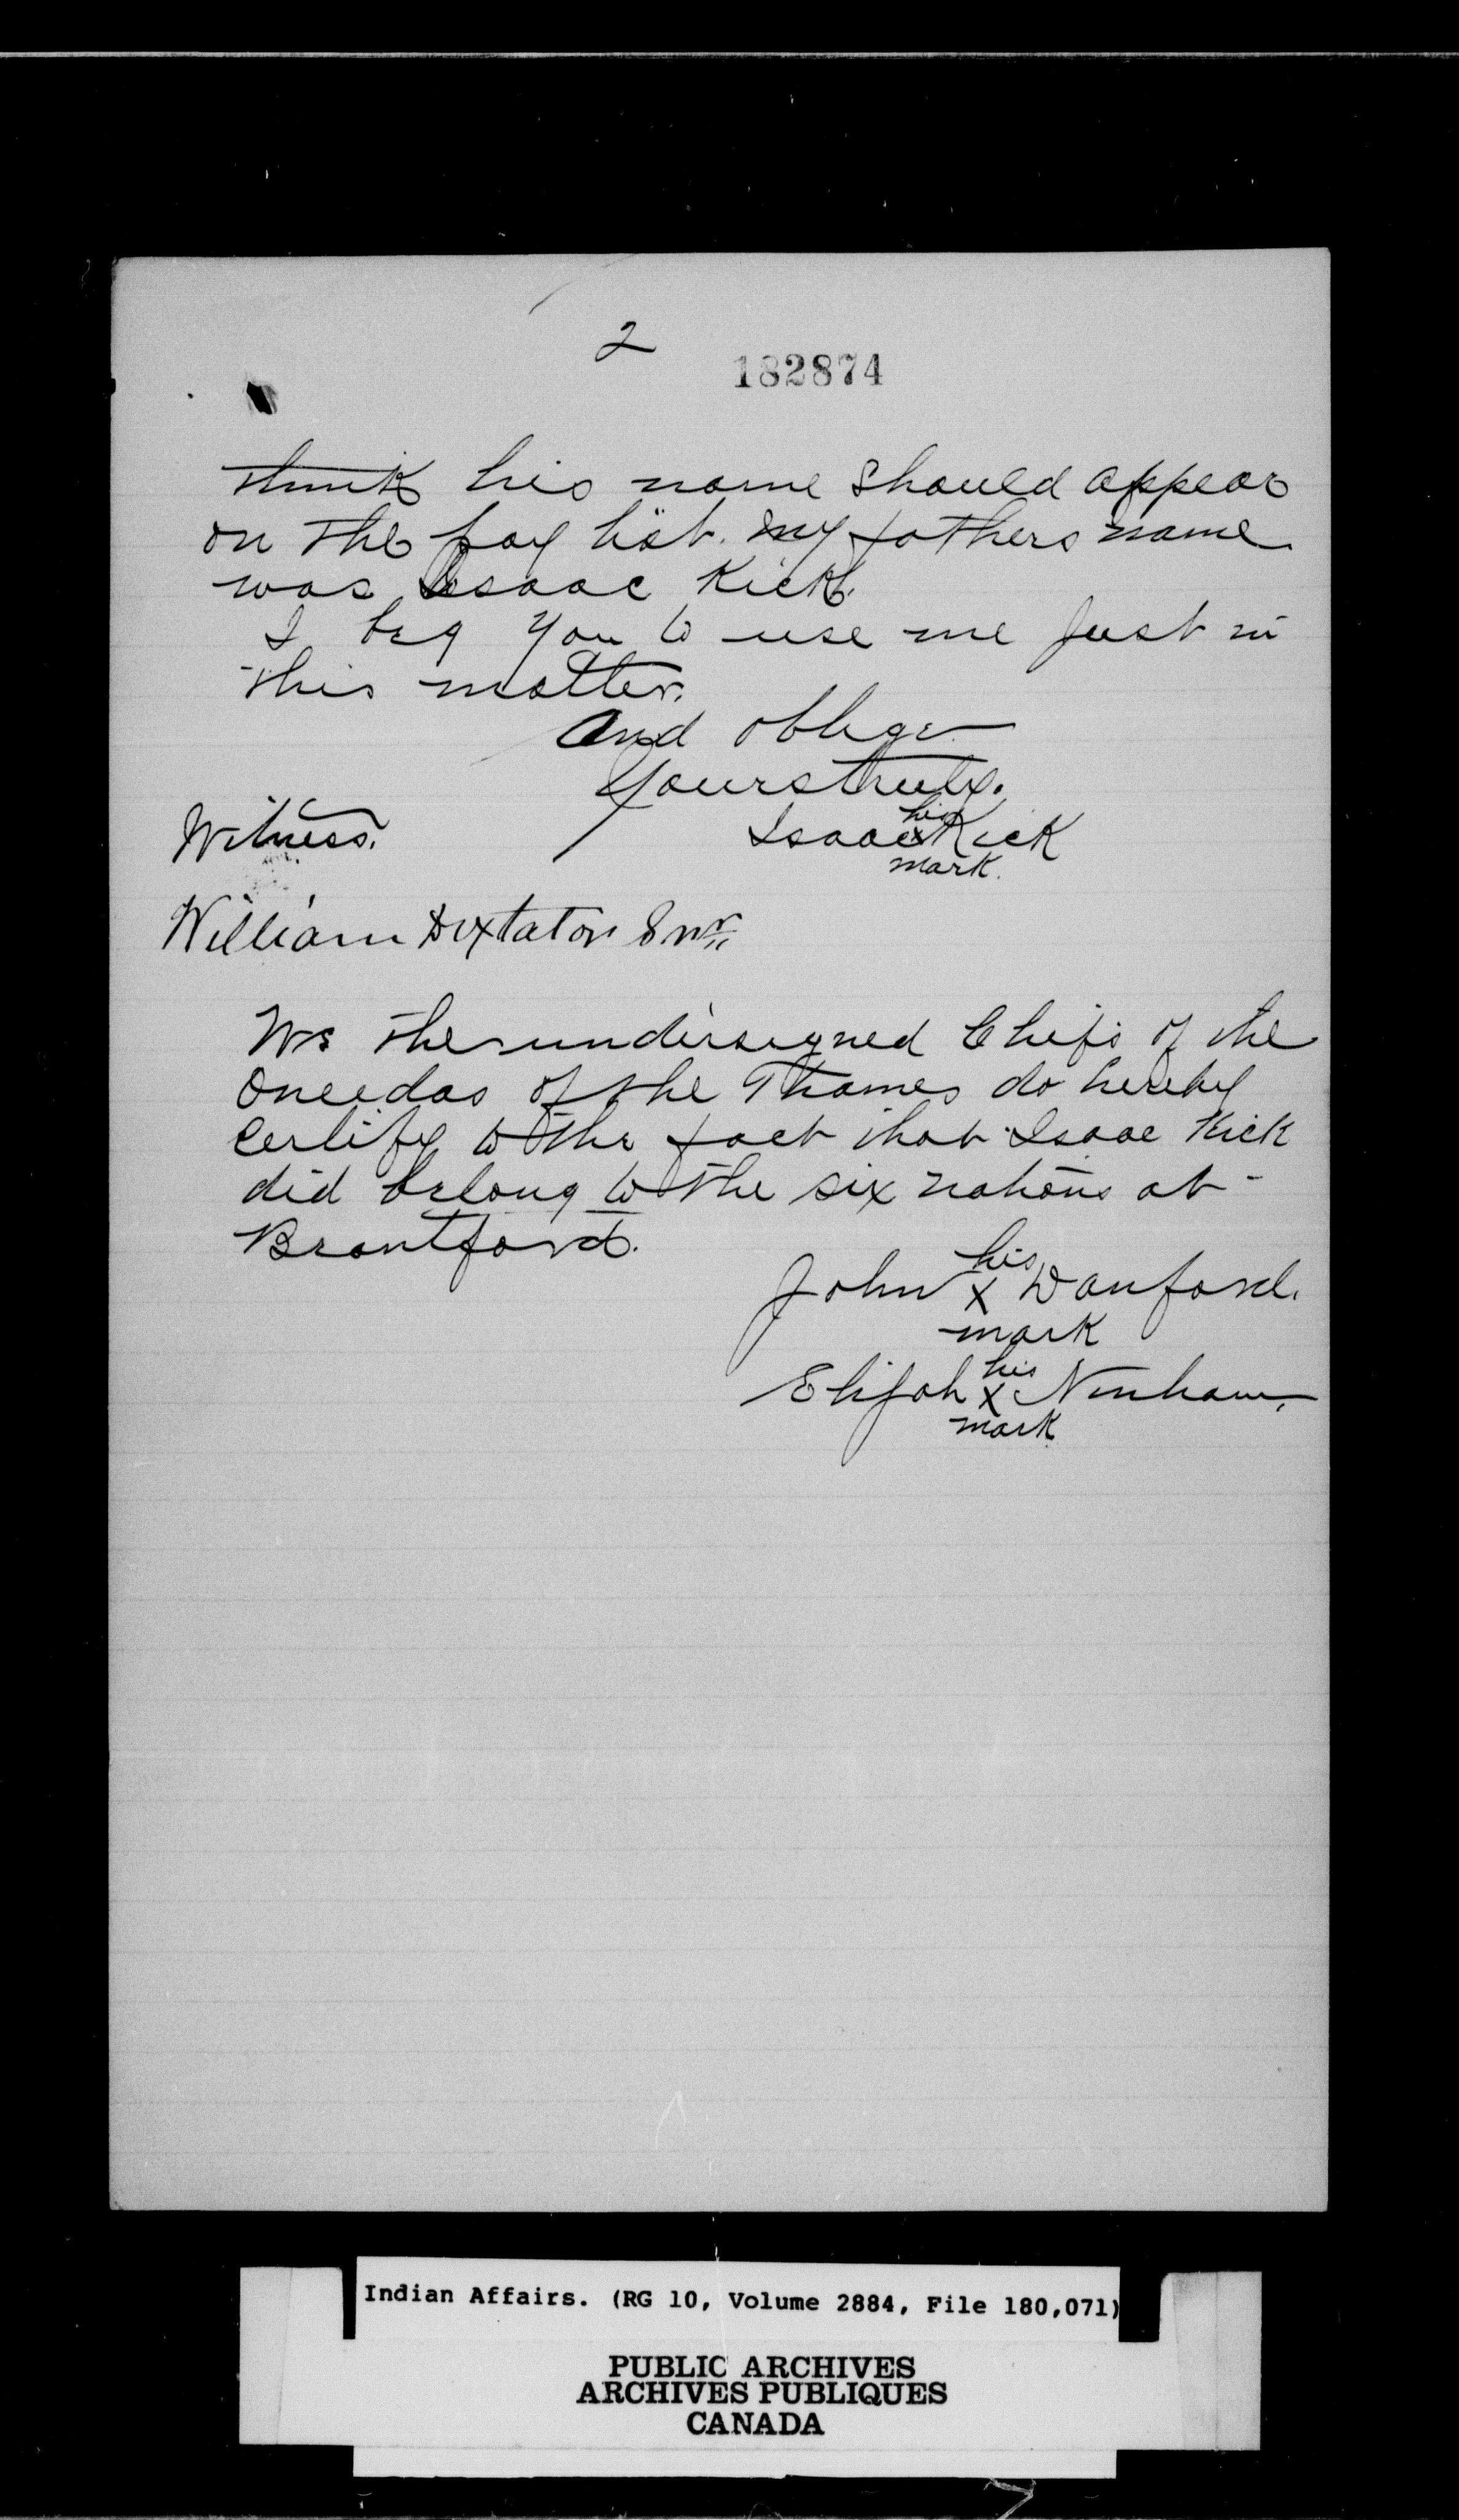 2
182874
think his name should appear
on the pay list. my fathers name
was Isaac Kick.
I beg you to use me just in
this matter.
and oblige
Yours truly.
Witness.
his
Isaac x Kick
mark.
William Doxtator Snr.
We the undersigned Chefs of the
Oneidas of the Thames do hereby
Certify to the fact that Isaac Kick
did belong to the six nations at
Brantford.
his
John x Danford.
mark
his
Elijah x Ninham.
mark
Indian Affairs. (RG 10, Volume 2884, File 180,071)
PUBLIC ARCHIVES
ARCHIVES PUBLIQUES
CANADA